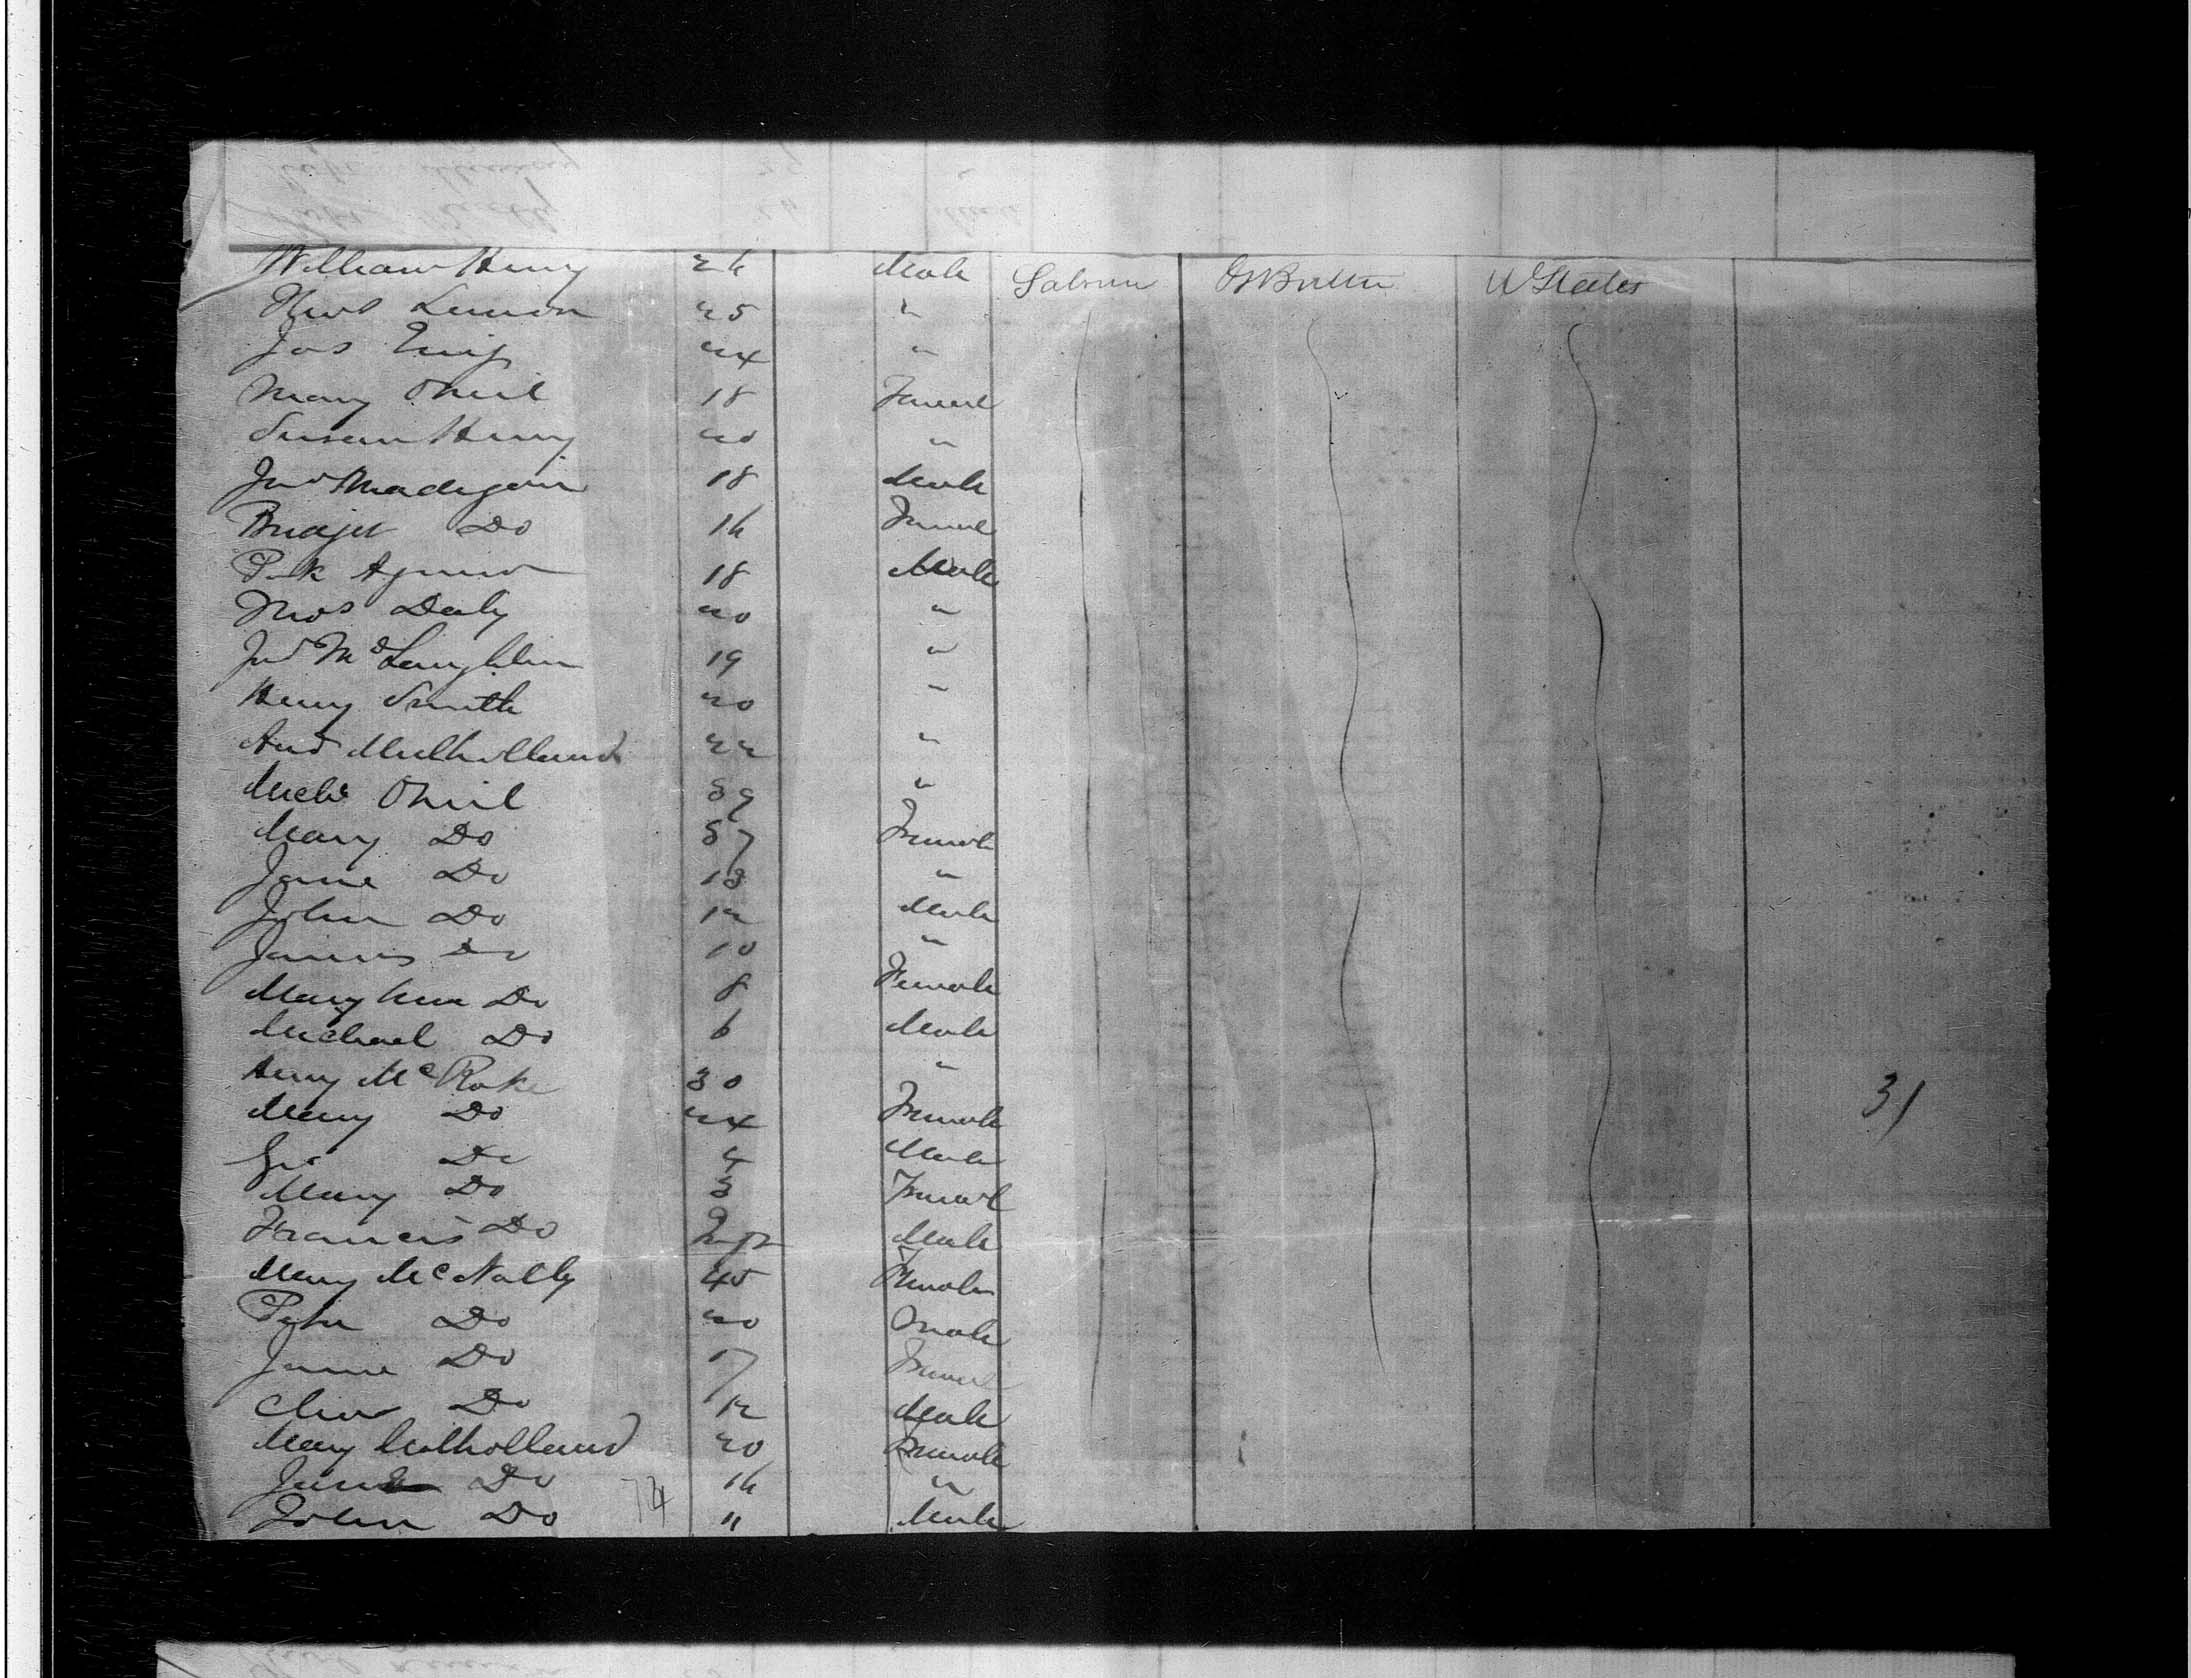 William Henry 26 Male Labourer Gt Britain U States
Thos Lennon 25 "
Jas 24 "
Mary ONeil 18 Female
Susan Henry 20 "
Jno Madigan 18 Male
Bridget Do 16 Female
Pk Agnew 18 Male
Thos Daly 20 "
Jno McLaughlin 19 "
Henry Smith 20 "
And Mulholland 22 "
Michl ONeil 39 "
Mary Do 37 Female
Jane Do 13 "
John Do 12 Male
James Do 10 "
Mary Ann Do 8 Female
Michael Do 6 Male
Henry McRoke 30 "
Mary Do 24 Female 31
Do 4 Male
Mary Do 3 Female
Francis Do Inft Male
Mary McNally 45 Female
Peter Do 20 Male
Jane Do 17 Female
Do 12 Male
Mary Mulholland 20 Female
Jane Do 16 "
John Do 74 11 Male